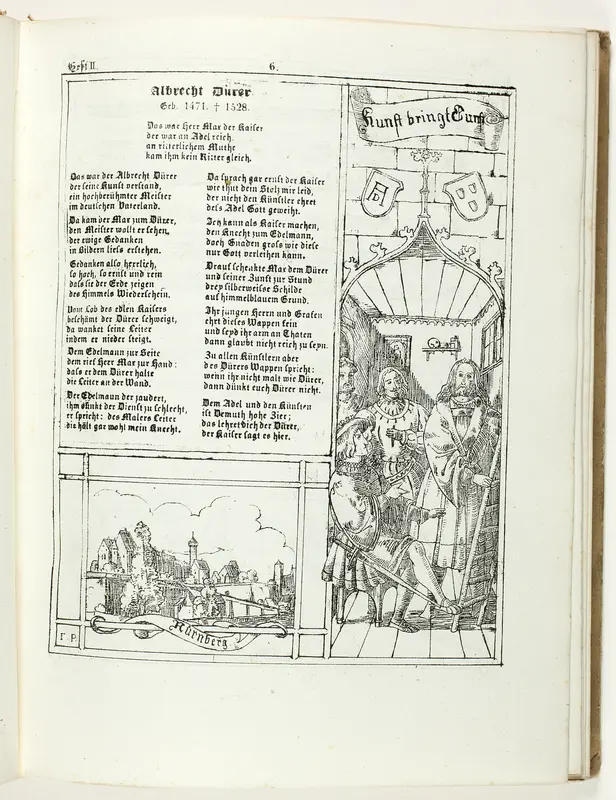 Heft II.
6.
Albrecht Dürer
Geb. 1471. † 1528.
Das war Herr Max der Kaiser
der war an Adel reich.
an ritterlichem Muthe
kam ihm kein Ritter gleich.
Das war der Albrecht Dürer
der seine Kunst verstand,
ein hochberühmter Meister
im deutschen Vaterland.
Da kam der Max zum Dürer,
den Meister wollt er sehen,
der ewige Gedanken
in Bildern liess erstehen.
Gedanken also herrlich,
so hoch, so ernst und rein
dass sie der Erde zeigen
des Himmels Wiederschein.
Vom Lob des edlen Kaisers
beschämt der Dürer schweigt,
da wanket seine Leiter
indem er nieder steigt.
Dem Edelmann zur Seite
dem rief Herr Max zur Hand:
dass er dem Dürer halte
die Leiter an der Wand.
Der Edelmann der zaudert,
ihm dünkt der Dienst zu schlecht,
er spricht: des Malers Leiter
die hält gar wohl mein Knecht.
Da sprach gar ernst der Kaiser
wie thut dein Stolz mir leid,
der nicht den Künstler ehret
dess Adel Gott geweiht.
Ich kann als Kaiser machen,
den Knecht zum Edelmann,
doch Gnaden gross wie diese
nur Gott verleihen kann.
Drauf schenkte Max dem Dürer
und seiner Zunft zur Stund
drey silberweisse Schilde
auf himmelblauem Grund.
Ihr jungen Herrn und Grafen
ehrt dieses Wappen fein
und seyd ihr arm an Thaten
dann glaubt nicht reich zu seyn.
Zu allen Künstlern aber
des Dürers Wappen spricht:
wenn ihr nicht malt wie Dürer,
dann dünkt euch Dürer nicht.
Dem Adel und den Künsten
ist Demuth hohe Zier;
das lehret dich der Dürer,
der Kaiser sagt es hier.
Kunst bringt Gunst
AD
Nürnberg
F. P.